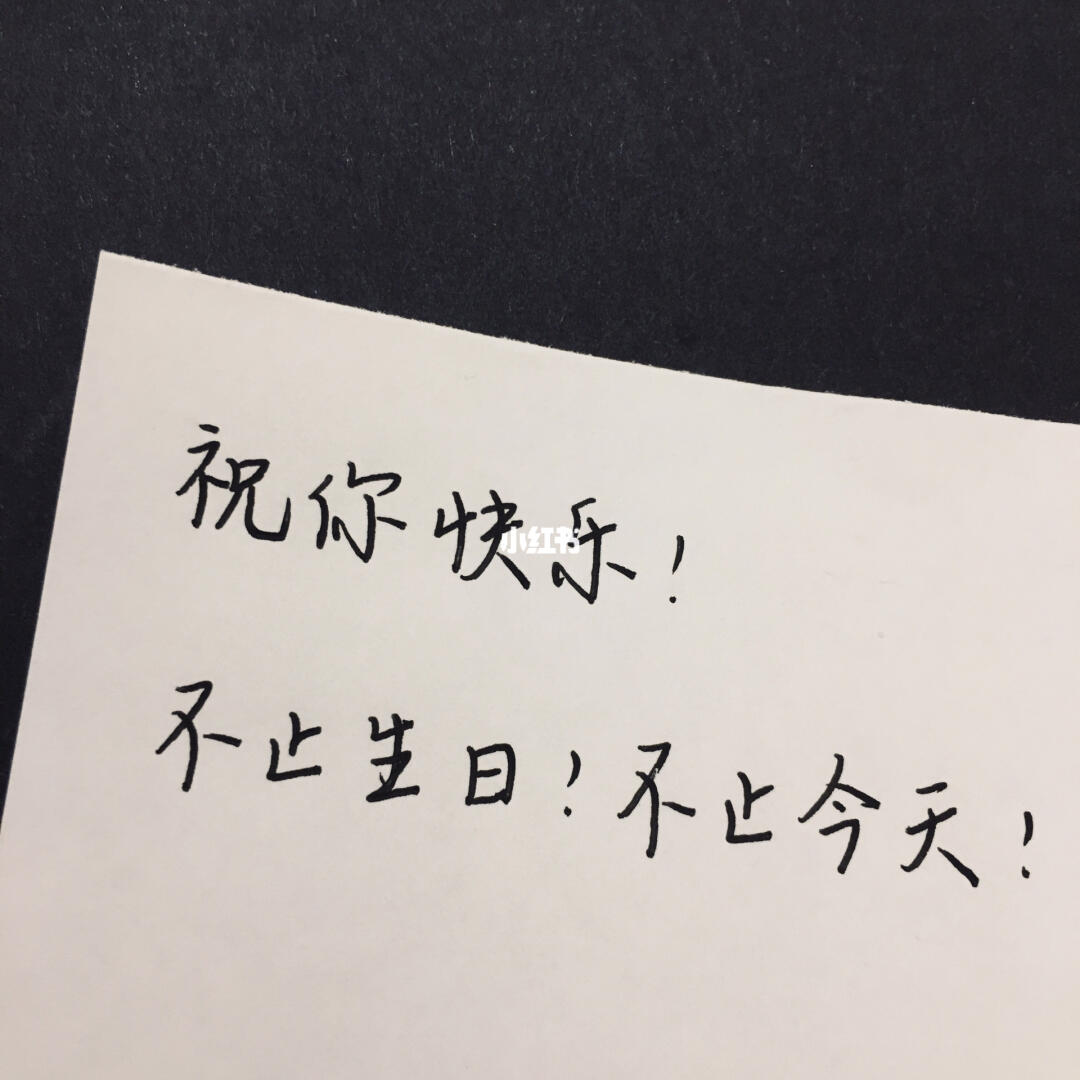 祝你快乐!
小红书
不止生日!不止今天!